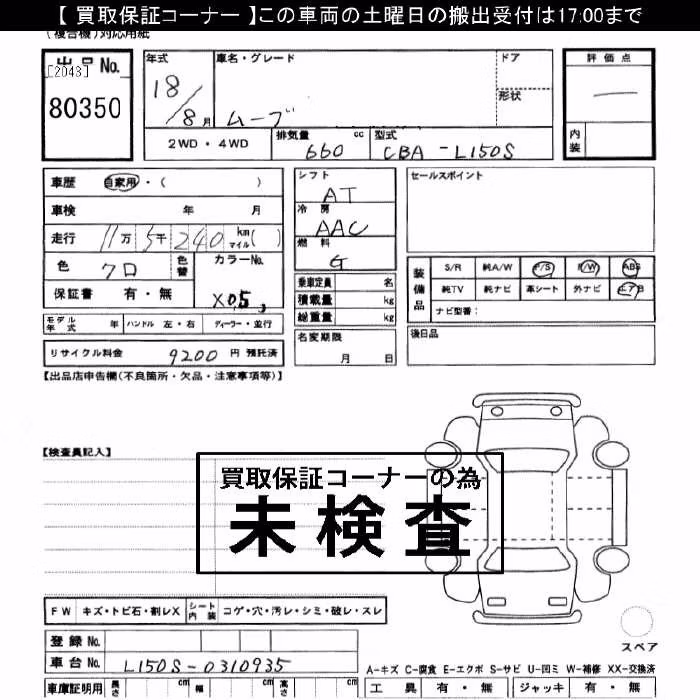 【 買取保証コーナー 】この車両の土曜日の搬出受付は17:00まで
(複合機)対応用紙
出品No.
[2043]
80350
年式
18/8月
車名・グレード
ムーブ
ドア
形状
2WD・4WD
排気量 660 cc
型式 CBA-L150S
評価点
―
内装
車歴 自家用・( )
車検 年 月
走行 11万5千240 km マイル( )
色 クロ 色替 カラーNo. X05
保証書 有・無
モデル年式 年 ハンドル 左・右 ディーラー・並行
リサイクル料金 9200 円 預託済
シフト
AT
冷房
AAC
燃料
G
乗車定員 名
積載量 kg
総重量 kg
名変期限
月 日
セールスポイント
装備品
S/R 純A/W P/S P/W ABS
純TV 純ナビ 革シート 外ナビ エアB
ナビ型番:
後日品
【出品店申告欄(不良箇所・欠品・注意事項等)】
【検査員記入】
買取保証コーナーの為
未検査
FW キズ・トビ石・割レX シート内装 コゲ・穴・汚レ・シミ・破レ・スレ
登録No.
車台No. L150S-0310935
車庫証明用 長さ cm 幅 cm 高さ cm
スペア
A-キズ C-腐食 E-エクボ S-サビ U-凹ミ W-補修 XX-交換済
工具 有・無 ジャッキ 有・無